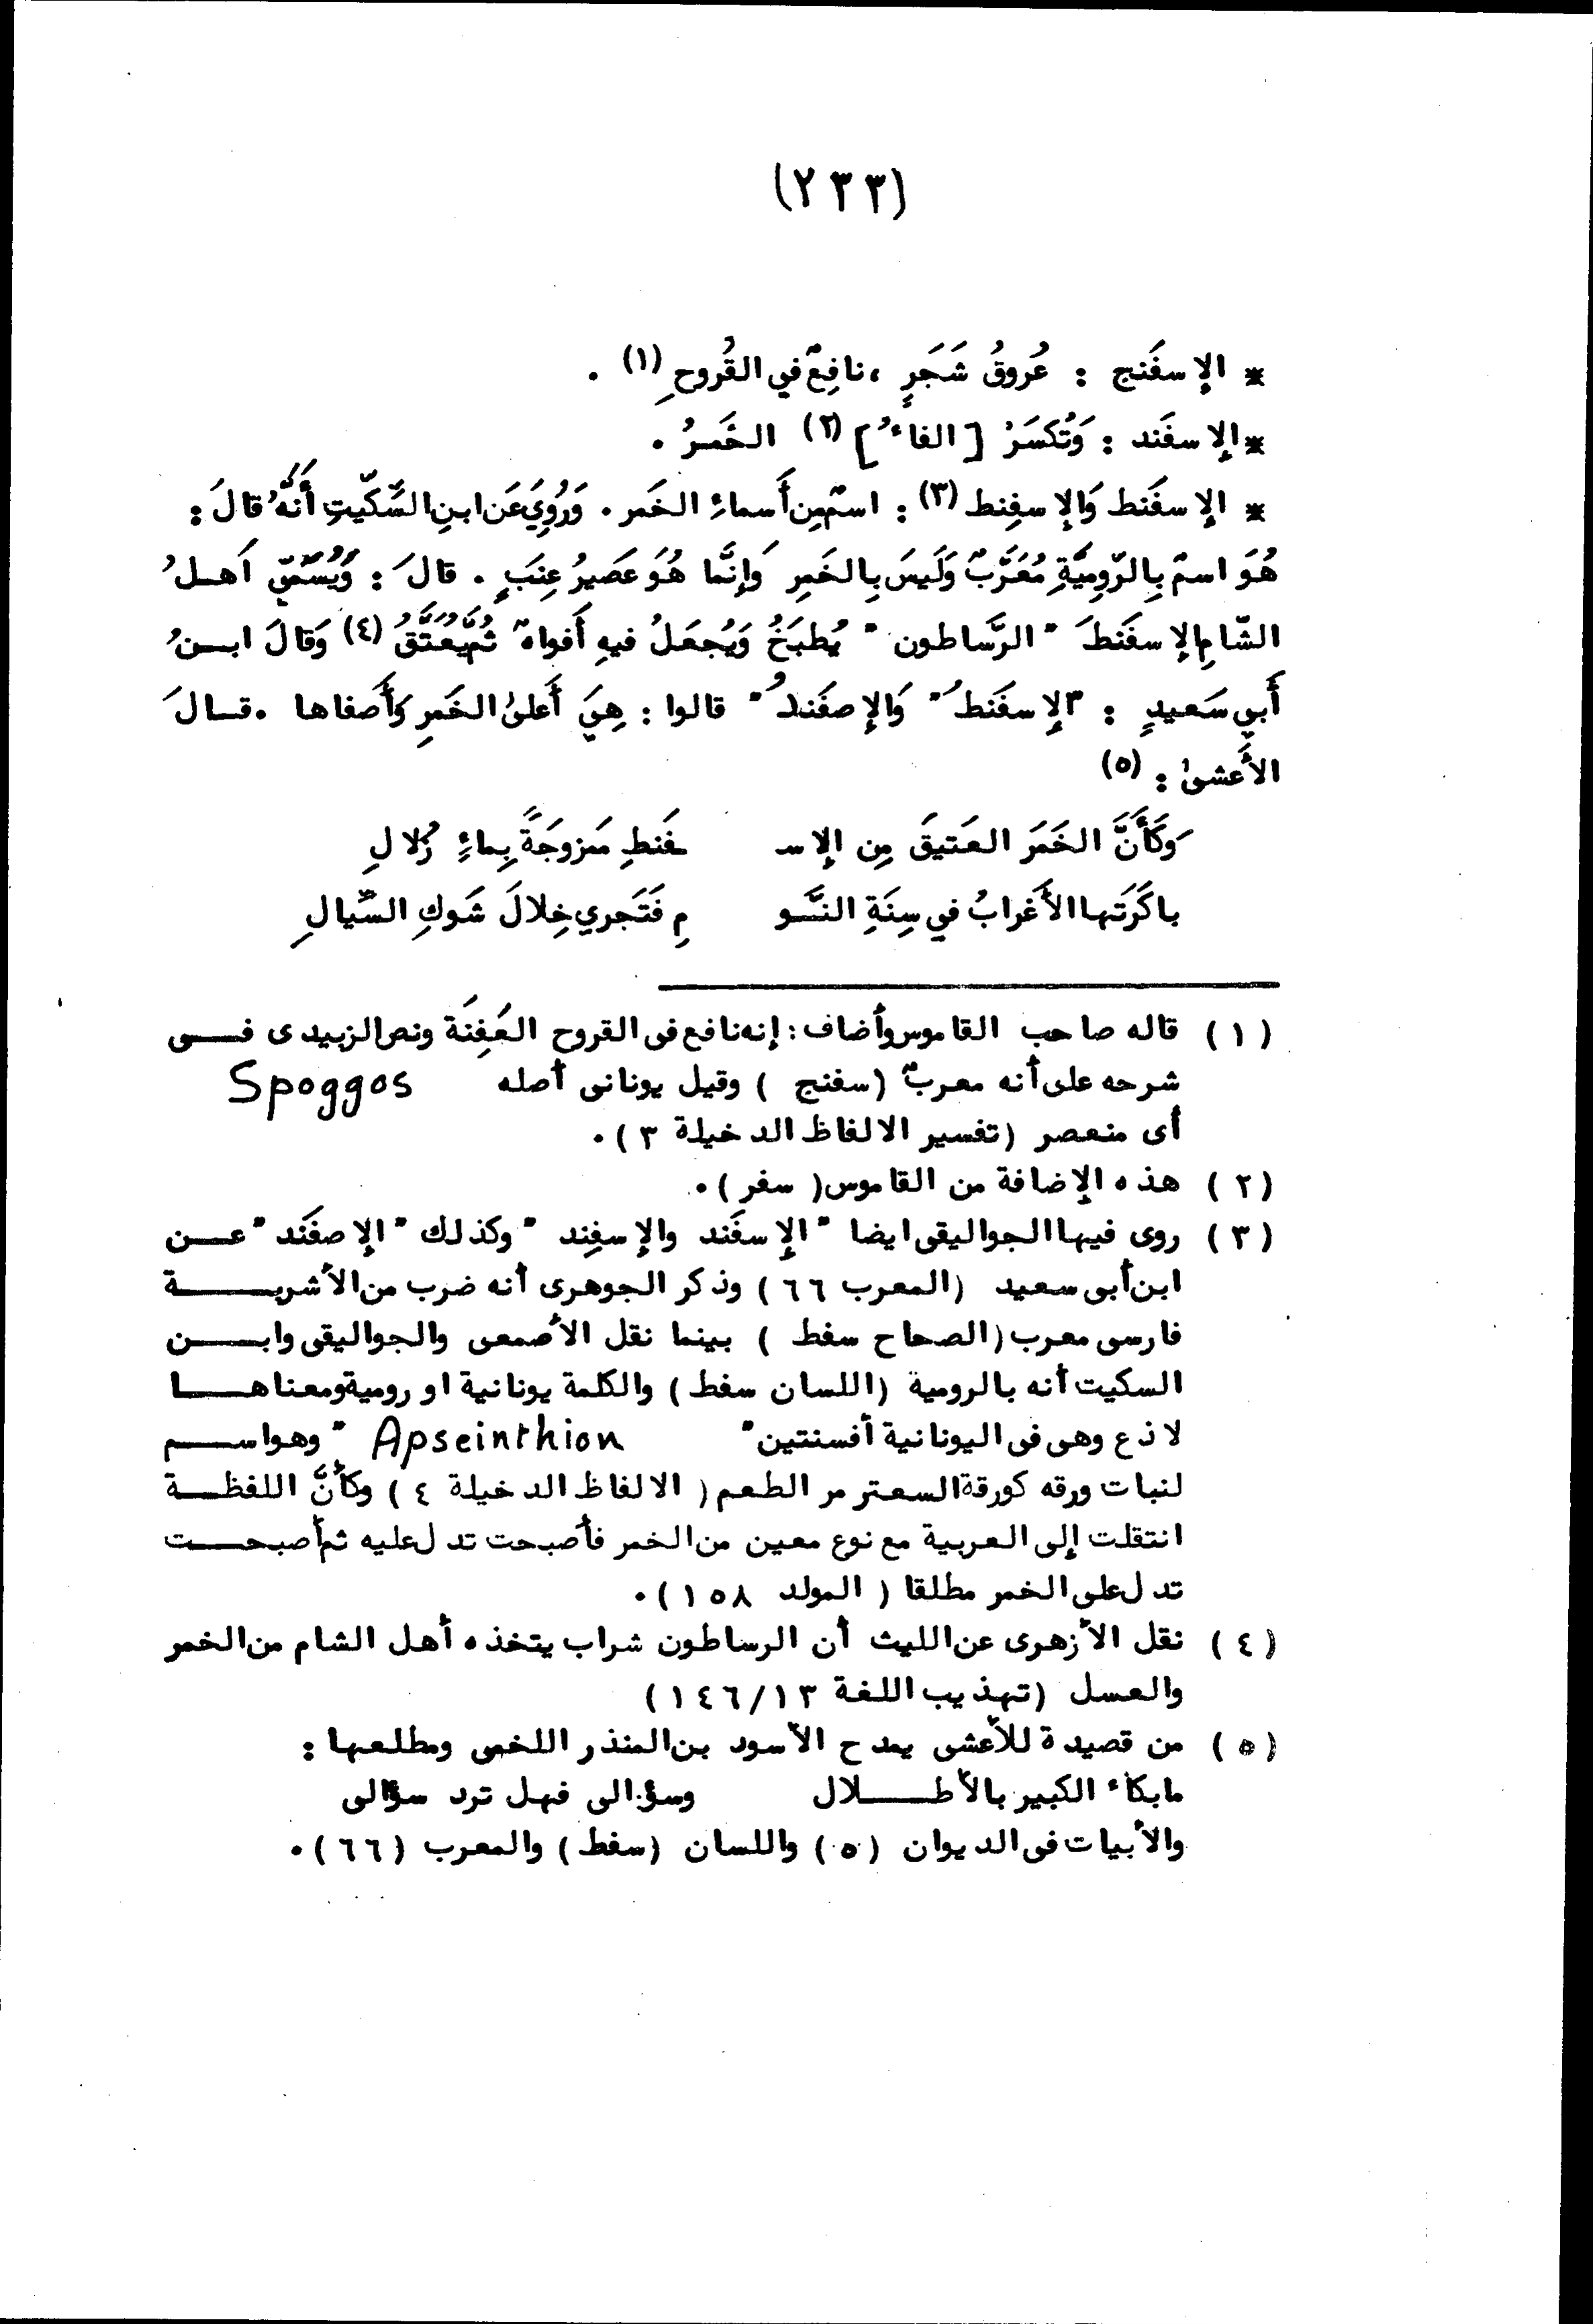 (٢٣٣)
* الإسفَنج : عُروقُ شَجَرٍ ، نافِعٌ في القُروحِ (١) .
* الإسفَند : وَتُكسَرُ [ الفاءُ ] (٢) الخَمرُ .
* الإسفَنط وَالإسفِنط (٣) : اسمٌ مِن أَسماءِ الخَمر . وَرُوِيَ عَن ابنِ السِّكّيتِ أَنَّهُ قالَ :
هُوَ اسمٌ بِالرّومِيَّةِ مُعَرَّبٌ وَلَيسَ بِالخَمرِ وَإِنَّما هُوَ عَصيرُ عِنَبٍ . قالَ : وَيُسَمّي اَهلُ
الشّامِ الإسفَنطَ " الرَّساطون " يُطبَخُ وَيُجعَلُ فيهِ أَفواهٌ ثُمَّ يُعَتَّقُ (٤) وَقالَ ابنُ
أَبي سَعيدٍ : " الإسفَنطُ " وَالإصفَندُ " قالوا : هِيَ أَعلىٰ الخَمرِ وَأَصفاها . قالَ
الأَعشىٰ : (٥)
وَكَأَنَّ الخَمَرَ العَتيقَ مِن الإسـ ـفَنطِ مَمزوجَةً بِماءٍ زُلالِ
باكَرَتها الأَغرابُ في سِنَةِ النَّو مِ فَتَجري خِلالَ شَوكِ السَّيالِ
(١) قاله صاحب القاموس وأضاف : إنه نافع فى القروح العَفِنَة ونص الزبيدى فى
شرحه على أنه معربٌ (سفنج ) وقيل يونانى أصله Spoggos
أى منعصر (تفسير الالفاظ الدخيلة ٣ ) .
(٢) هذه الإضافة من القاموس( سفر ) .
(٣) روى فيها الجواليقى ايضا " الإسفَند والإسفِند " وكذلك " الإصفَند " عن
ابن أبى سعيد (المعرب ٦٦ ) وذكر الجوهرى أنه ضرب من الأشربة
فارسى معرب (الصحاح سفط ) بينما نقل الأصمعى والجواليقى وابن
السكيت أنه بالرومية (اللسان سفط ) والكلمة يونانية او رومية ومعناها
لاذع وهى فى اليونانية أفسنتين " Apseinthion " وهو اسم
لنبات ورقه كورقة السعتر مر الطعم ( الالفاظ الدخيلة ٤ ) وكأنَّ اللفظة
انتقلت إلى العربية مع نوع معين من الخمر فأصبحت تدل عليه ثم أصبحت
تدل على الخمر مطلقا ( المولد ١٥٨ ) .
(٤) نقل الأزهرى عن الليث أن الرساطون شراب يتخذه أهل الشام من الخمر
والعسل (تهذيب اللغة ١٤٦/١٣ )
(٥) من قصيدة للأعشى يمدح الأسود بن المنذر اللخمى ومطلعها :
مابكاء الكبير بالأطلال وسؤالى فهل ترد سؤالى
والأبيات فى الديوان (٥) واللسان (سفط) والمعرب (٦٦) .